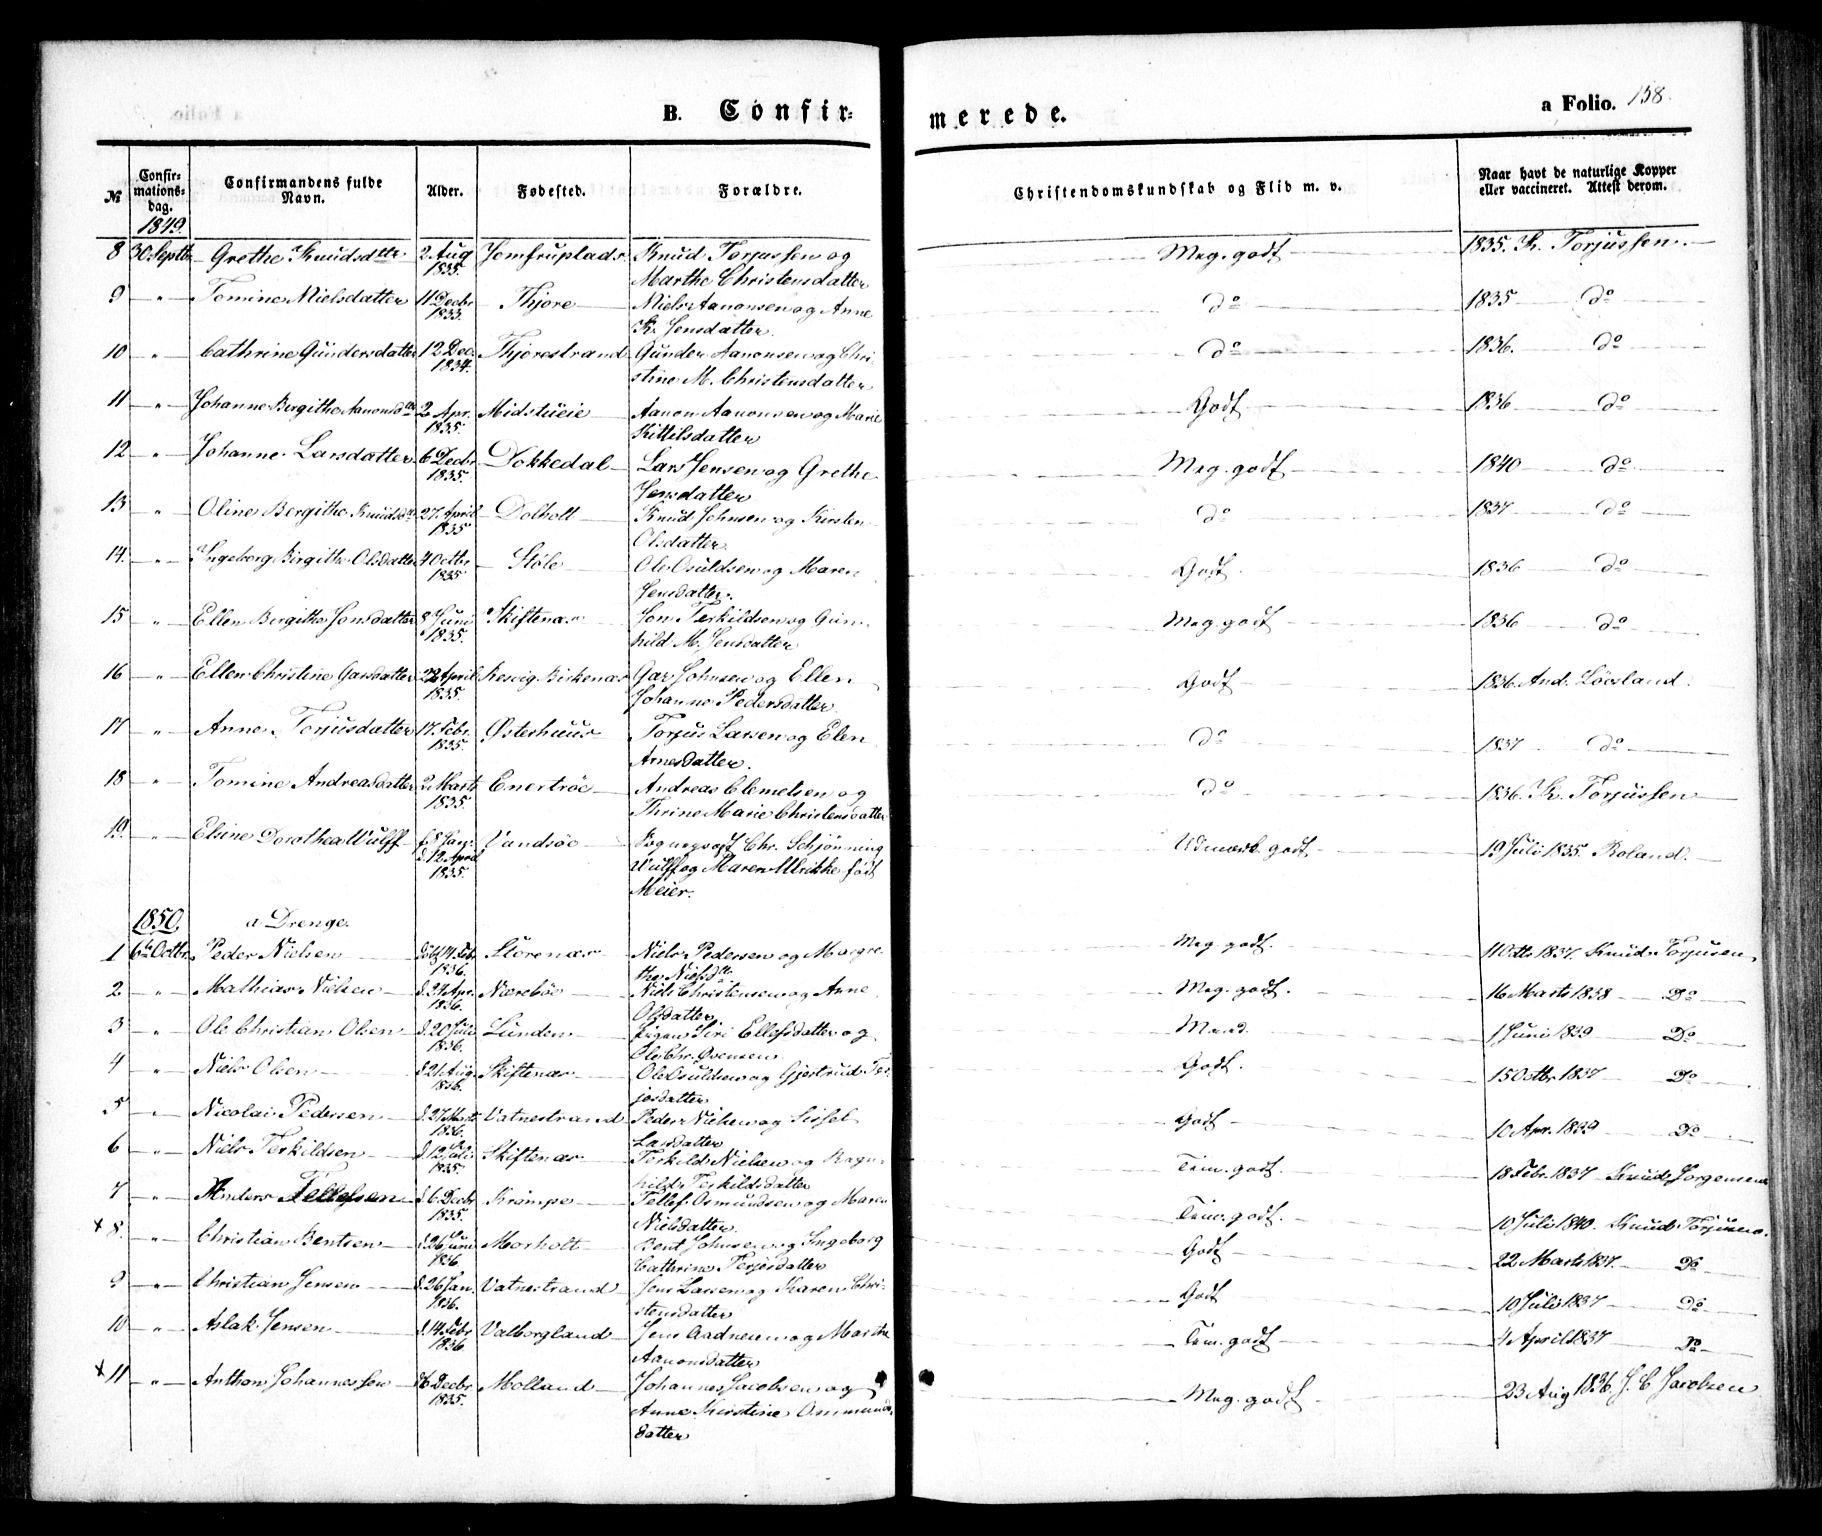 B. Confir-
merede.
a Folio. 158.
№
Confir-
mations-
dag.
Confirmandens fulde
Navn.
Alder.
Fødested.
Forældre.
Christendomskundskab og Flid m. v.
Naar havt de naturlige Kopper
eller vaccineret. Attest derom.
1849.
8 30 Septb. Grethe Knudsdttr. 2 Aug 1835. Jomfruplads Knud Torjussen og
Marthe Christensdatter
Meg. godt 1835. K. Torjussen.
9 " Tomine Nielsdatter 11 Decbr 1833. Thjore Niels Aanonsen og Anne
K. Jensdatter.
do 1835 do
10 " Cathrine Gundersdatter 12 Dec. 1834. Thjorestrand Gunder Aanonsen og Chri-
stine M. Christensdatter
do 1836. do
11 " Johanne Bergithe Aanonsd 2 Apr. 1835. Midstueie Aanon Aanonsen og Marie
Kittilsdatter
Godt 1836 do
12 " Johanne Larsdatter 6 Decbr 1835. Dokkedal Lars Jensen og Grethe
Jensdatter
Meg. godt 1840 do
13 " Oline Bergithe Knudsd 27 April 1835 Dolholt Knud Johnsen og Kirsten
Olsdatter
do 1837 do
14. " Ingeborg Birgithe Olsdatter 4 Octbr 1835 Støle Ole Osuldsen og Maren
Jensdatter.
Godt 1836 do
15 " Ellen Bergithe Jonsdatter 8 Juni 1835. Skiftenæs Jon Terkildsen og Gun-
hild M. Jensdatter
Meg. godt 1836 do
16 " Ellen Christine Garsdatter 22 April 1835. Birkenæs Gar Johnsen og Ellen
Johanne Pedersdatter.
Godt 1836. And. Løvsland.
17 " Anne Torjusdatter 17 Febr. 1835. Østerhuus Torjus Larsen og Elen
Arnesdatter.
do 1837 do
18 " Tomine Andreasdatter 2 Marts 1835. Enertrøe Andreas Clemetsen og
Thrine Marie Christensdatter
do 1836. K. Torjussen
19. " Elsine Dorothea Wulff f. 8 Jan. d. 12 April 1835. Vandsøe Sognepræst Chr. Schjønning
Wulff og Maren Ulrikke født
Meier.
Udmærk. godt 19 Juli 1835. Roland.
1850. a Drenge.
1 6te Octbr. Peder Nielsen 14 Feb. 1836. Storenæs Niels Pedersen og Margre-
the Nielsdtr
Meg. godt. 11 Octb 1837. Knud Torjusen
2 " Mathias Nielsen d. 27 Apr. 1836. Nærebøe Niels Christensen og Anne
Olsdatter
Meg. godt. 16 Marts 1838 Do
3 " Ole Christian Olsen d. 20 Juli 1836. Lunden Pigen Siri Ellefsdatter og
Ole Chr. Svensen
1 Juni 1839 Do
4 " Niels Olsen d. 21 Aug. 1836. Skiftenæs Ole Osuldsen og Gjertrud Ter-
jesdatter
Godt. 15 Octbr. 1837 Do
5 " Nicolai Pedersen d. 27 Marts 1836. Vatnestrand Peder Nielsen og Sissel
Larsdatter
Godt 10 Apr. 1839 Do
6 " Niels Terkildsen d. 12 Juli 1835. Skiftenæs Terkild Nielsen og Ragn-
hild Terkildsdatter
Tem. godt. 18 Febr. 1837 Knud Jørgensen
7 " Anders Tellefsen d. 6 Decbr 1835. Krømpe Tellef Osmundsen og Maren
Nielsdatter.
Tem. godt. 10 Juli 1840. Knud Torjusen.
x 8. " Christian Bentsen d. 26 Juni 1836 Morholt Bent Johnsen og Ingeborg
Cathrine Terjesdatter
Godt 22 Marts 1837. Do
9 " Christian Jensen d. 26 Jan. 1836. Vatnestrand Jens Larsen og Karen Chri-
stensdatter
Godt 10 Juli 1837 Do
10 " Aslak Jensen d. 14 Febr 1836 Valborgland Jens Aadnesen og Marthe
Aanonsdatter
Tem. godt 4 April 1837 Do
x 11 " Anthon Johannessen d. 6 Decbr 1835. Molland Johannes Jacobsen og
Anne Kirstine Ommunds-
datter
Meg. godt 23 Aug 1836. J. C. Jacobsen